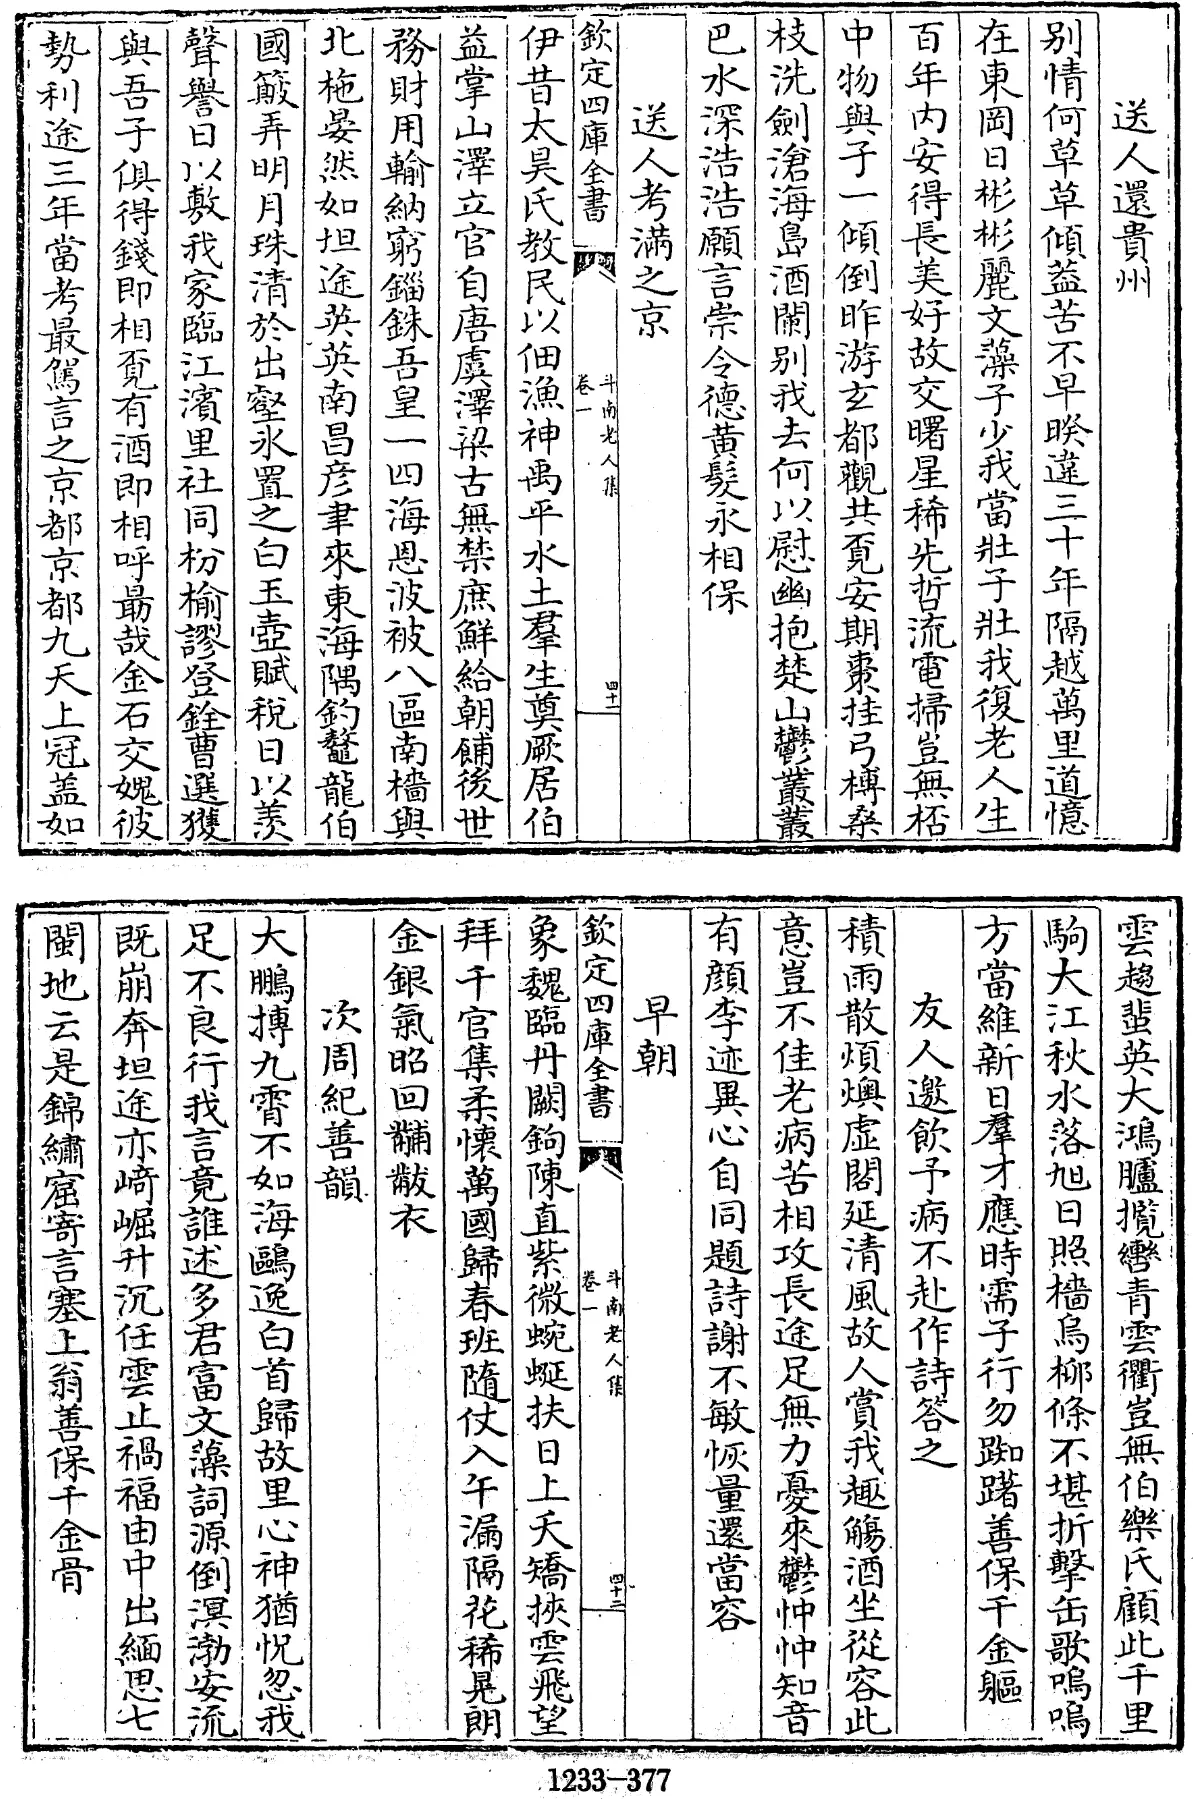 送人還貴州
别情何草草傾葢苦不早暌違三十年隔越萬里道憶
在東岡日彬彬麗文藻子少我當壯子壯我復老人生
百年内安得長美好故交曙星稀先哲流電掃豈無桮
中物與子一傾倒昨游玄都觀共覔安期棗挂弓榑桑
枝洗劍滄海島酒闌别我去何以慰幽抱楚山鬱叢叢
巴水深浩浩願言崇令德黄髮永相保
送人考滿之京
欽定四庫全書
斗南老人集
卷一
四十一
伊昔太昊氏教民以佃漁神禹平水土羣生奠厥居伯
益掌山澤立官自唐虞澤梁古無禁庶鮮給朝餔後世
務財用輸納窮錙銖吾皇一四海恩波被八區南檣與
北柂晏然如坦途英英南昌彦聿來東海隅釣鼇龍伯
國簸弄明月珠清於出壑氷置之白玉壺賦税日以羡
聲譽日以敷我家臨江濱里社同枌榆謬登銓曹選獲
與吾子俱得錢即相覔有酒即相呼勗哉金石交媿彼
勢利途三年當考最駕言之京都京都九天上冠盖如
雲趨蜚英大鴻臚攬轡青雲衢豈無伯樂氏顧此千里
駒大江秋水落旭日照檣烏桞條不堪折擊缶歌嗚嗚
方當維新日羣才應時需子行勿踟躇善保千金軀
友人邀飲予病不赴作詩答之
積雨散煩燠虚閣延清風故人賞我趣觴酒坐從容此
意豈不佳老病苦相攻長途足無力憂來鬱忡忡知音
有顔李迹異心自同題詩謝不敏恢量還當容
早朝
欽定四庫全書
斗南老人集
卷一
四十二
象魏臨丹闕鉤陳直紫微蜿蜒扶日上夭矯挾雲飛望
拜千官集柔懷萬國歸春班隨仗入午漏隔花稀晃朗
金銀氣昭回黼黻衣
次周紀善韻
大鵬摶九霄不如海鷗逸白首歸故里心神猶怳忽我
足不良行我言竟誰述多君富文藻詞源倒溟渤安流
既崩奔坦途亦崎崛升沉任雲止禍福由中出緬思七
閩地云是錦繡窟寄言塞上翁善保千金骨
1233—377